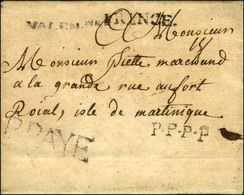 VALENCE FRANCE.
A Monsieur
Monsieur piette marchand
a la grande rue au fort
Roial, isle de martinique
P.PAYE P.P.P.P